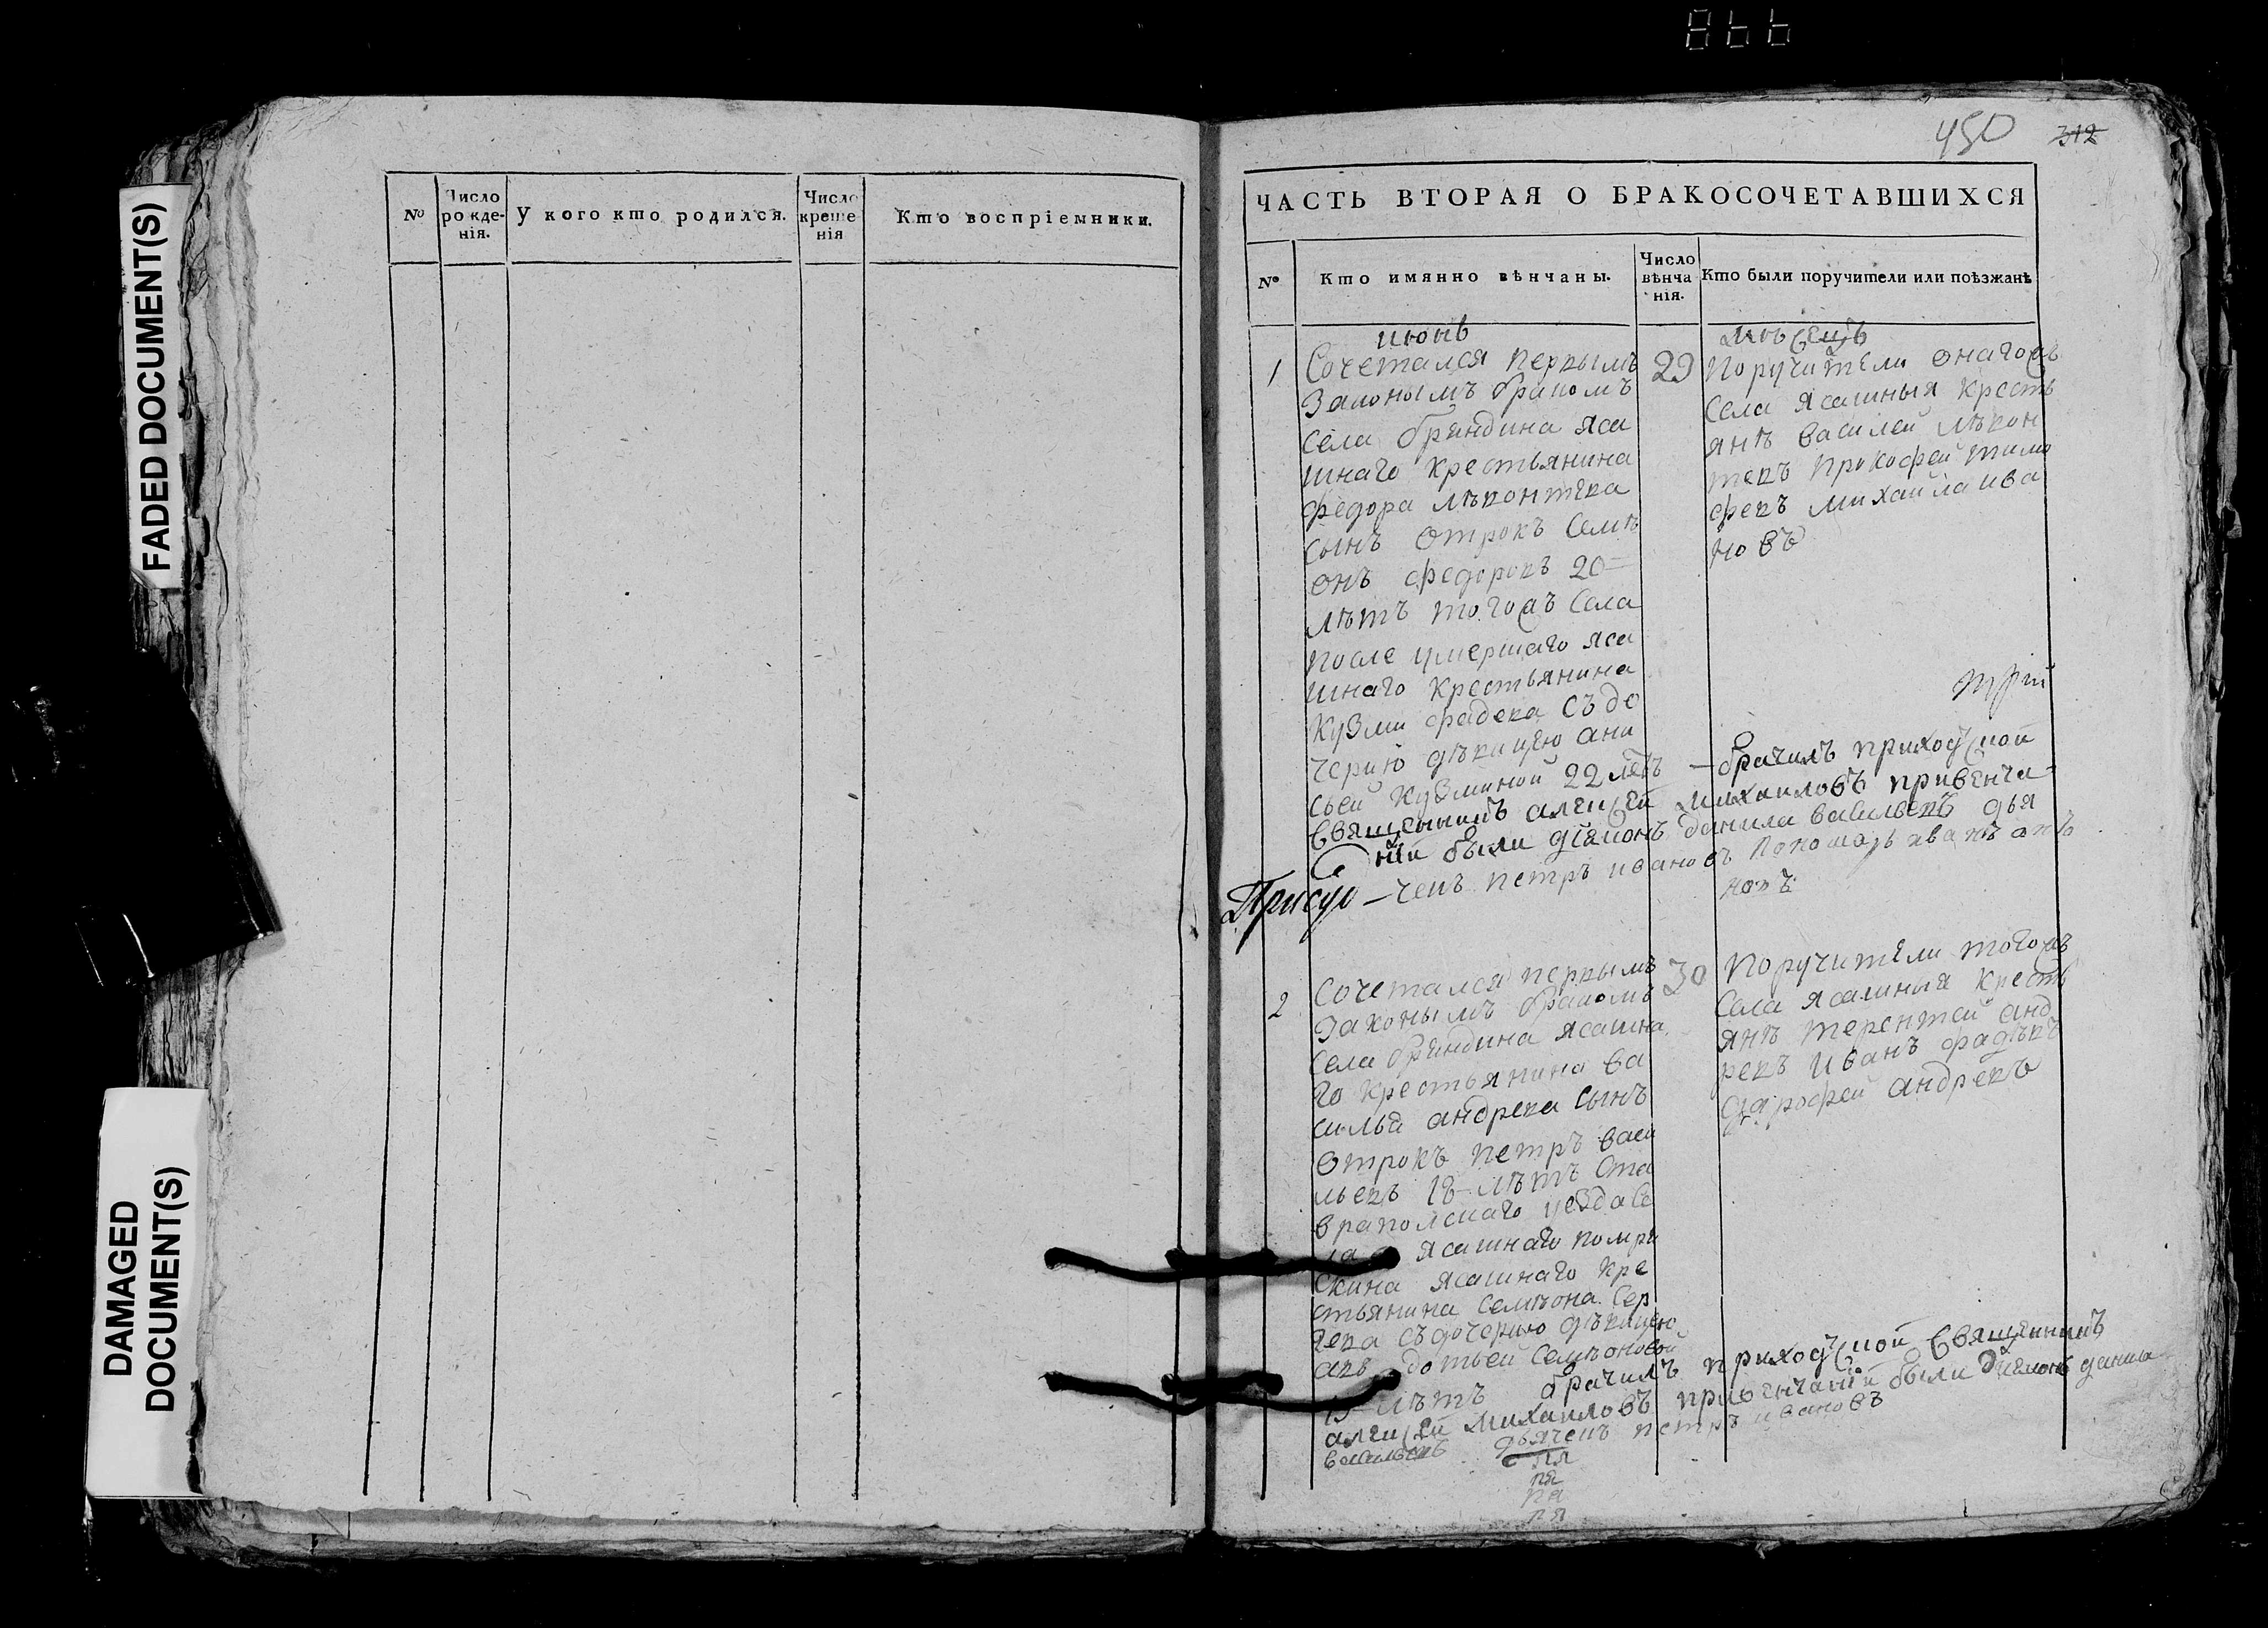 866
FADED DOCUMENT(S)
DAMAGED
DOCUMENT(S)
№
Число
рожде-
нія.
У кого кто родился.
Число
креще
нія
Кто воспріемники.
450 312
ЧАСТЬ ВТОРАЯ О БРАКОСОЧЕТАВШИХСЯ
№
Кто имянно вѣнчаны.
Число
вѣнча
нія.
Кто были поручители или поѣзжанѣ
июнь
1
Сочетался первымъ
Законымъ бракомъ
села бряндина яса
шнаго крестьянина
федора лѣконтева
сынъ отрокъ Семѣ
онъ федоровъ 20
лѣтъ тогожъ села
после умершаго яса
шнаго крестьянина
кузми фадева съ до
черию дѣвицею ани
сьей кузминой 22 летъ
29
мѣсецъ
Поручители онагожъ
села ясашныя кресть
янѣ василей лѣкон
тевъ прокофей тимо
февъ михайла ива
новъ
трій
— брачилъ приходской
священикъ алексей михаиловъ привенча
ній были діяконъ данила васильевъ дья
Присуо — чекъ петръ ивановъ пономарь иванъ
новъ
2
Сочетался первымъ
Законымъ бракомъ
села бряндина ясашна
го крестьянина ва
силья андрева сынъ
отрокъ петръ васи
льевъ 18 лѣтъ ста
врапольскаго уезда се
ла ясашнаго помря
скина ясашнаго кре
стьянина семѣона сер
гева съ дочерию дѣвицею
авдотьей семѣоновой
лѣтъ
30
Поручители тогожъ
села ясашныя кресть
янѣ терентей анд
ревъ иванъ фадѣвъ
дарофей андревъ
брачилъ приходской священникъ
алексей михаиловъ привенчаніи были діяконъ данила
васильевъ дьячекъ петръ ивановъ
пя
пя
пя
пя